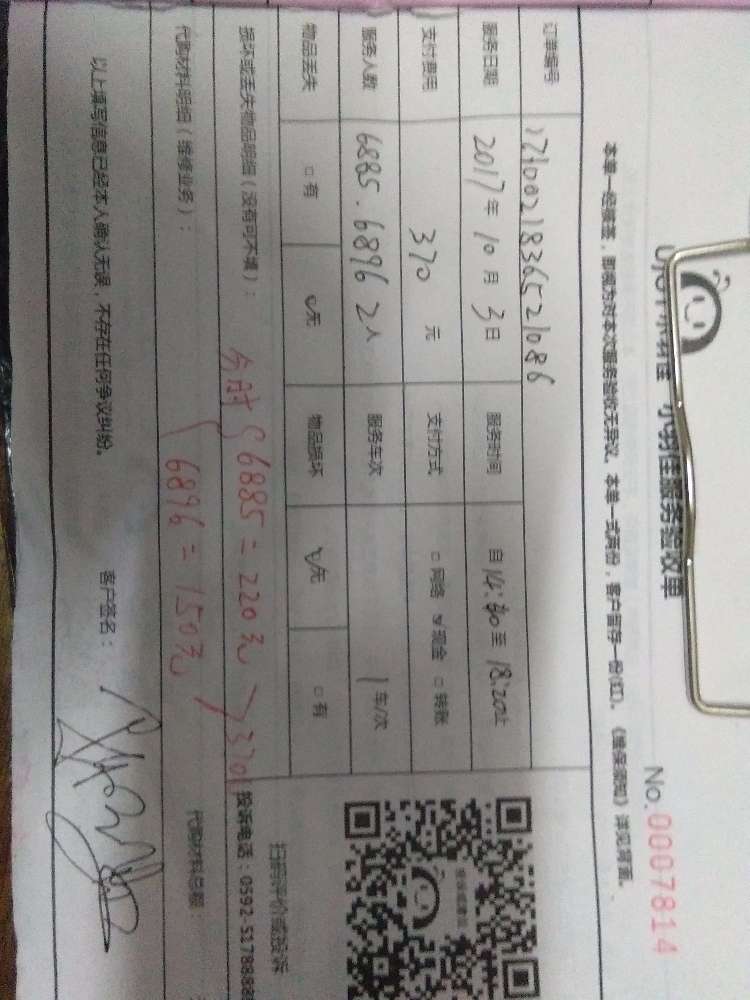 小羽佳服务验收单
No.0007814
本单一经接签，即视为对本次服务验收无异议。本单一式两份，客户留存一份(红)。《维保须知》详见背面。
订单编号 1710021836521086
服务日期 2017年10月3日 服务时间 自14:40至18:20止
支付费用 370元 支付方式 □网络 ☑现金 □转账
服务人数 6885.6896 2人 服务车次 1车/次
物品丢失 □有 ☑无 物品损坏 ☑无 □有
损坏或丢失物品明细（没有可不填）：
6885=220元
370
代购材料明细（维修业务）：
6896=150元
代购材料总额：
扫码评价或投诉
投诉电话：0592-5178888
以上填写信息已经本人确认无误，不存在任何争议纠纷。 客户签名：